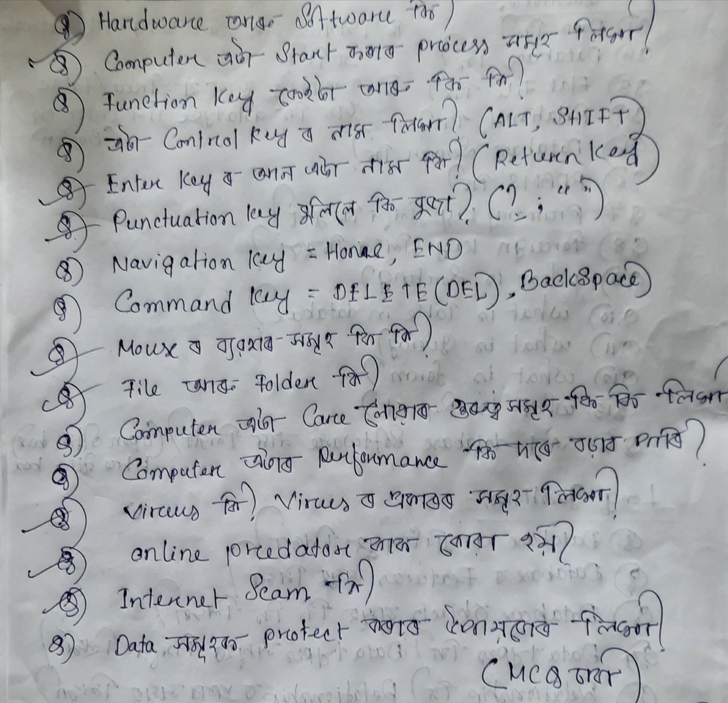 Q) Hardware আৰু Software কি?
Q) Computer এটা Start কৰাৰ process সমূহ লিখা?
Q) Function Key কেইটা আৰু কি কি?
Q) এটা Control Key ৰ নাম লিখা? (ALT, SHIFT)
Q) Enter Key ৰ আন এটা নাম কি? (Return Key)
Q) Punctuation key বুলিলে কি বুজা? (? ; “ ”)
Q) Navigation Key = Home, END
Q) Command Key = DELETE (DEL), BackSpace)
Q) Mouse ৰ ব্যৱহাৰ সমূহ কি কি?
Q) File আৰু Folder কি?
Q) Computer এটা Care লোৱাৰ গুৰুত্ব সমূহ কি কি লিখা
Q) Computer এটাৰ Performance কি দৰে বঢ়াব পাৰি?
Q) Virus কি? Virus ৰ প্ৰকাৰৰ সমূহ লিখা?
Q) online predator কাক কোৱা হয়?
Q) Internet Scam কি?
Q) Data সমূহক protect কৰাৰ লিখা?
(MCQ চাবা)